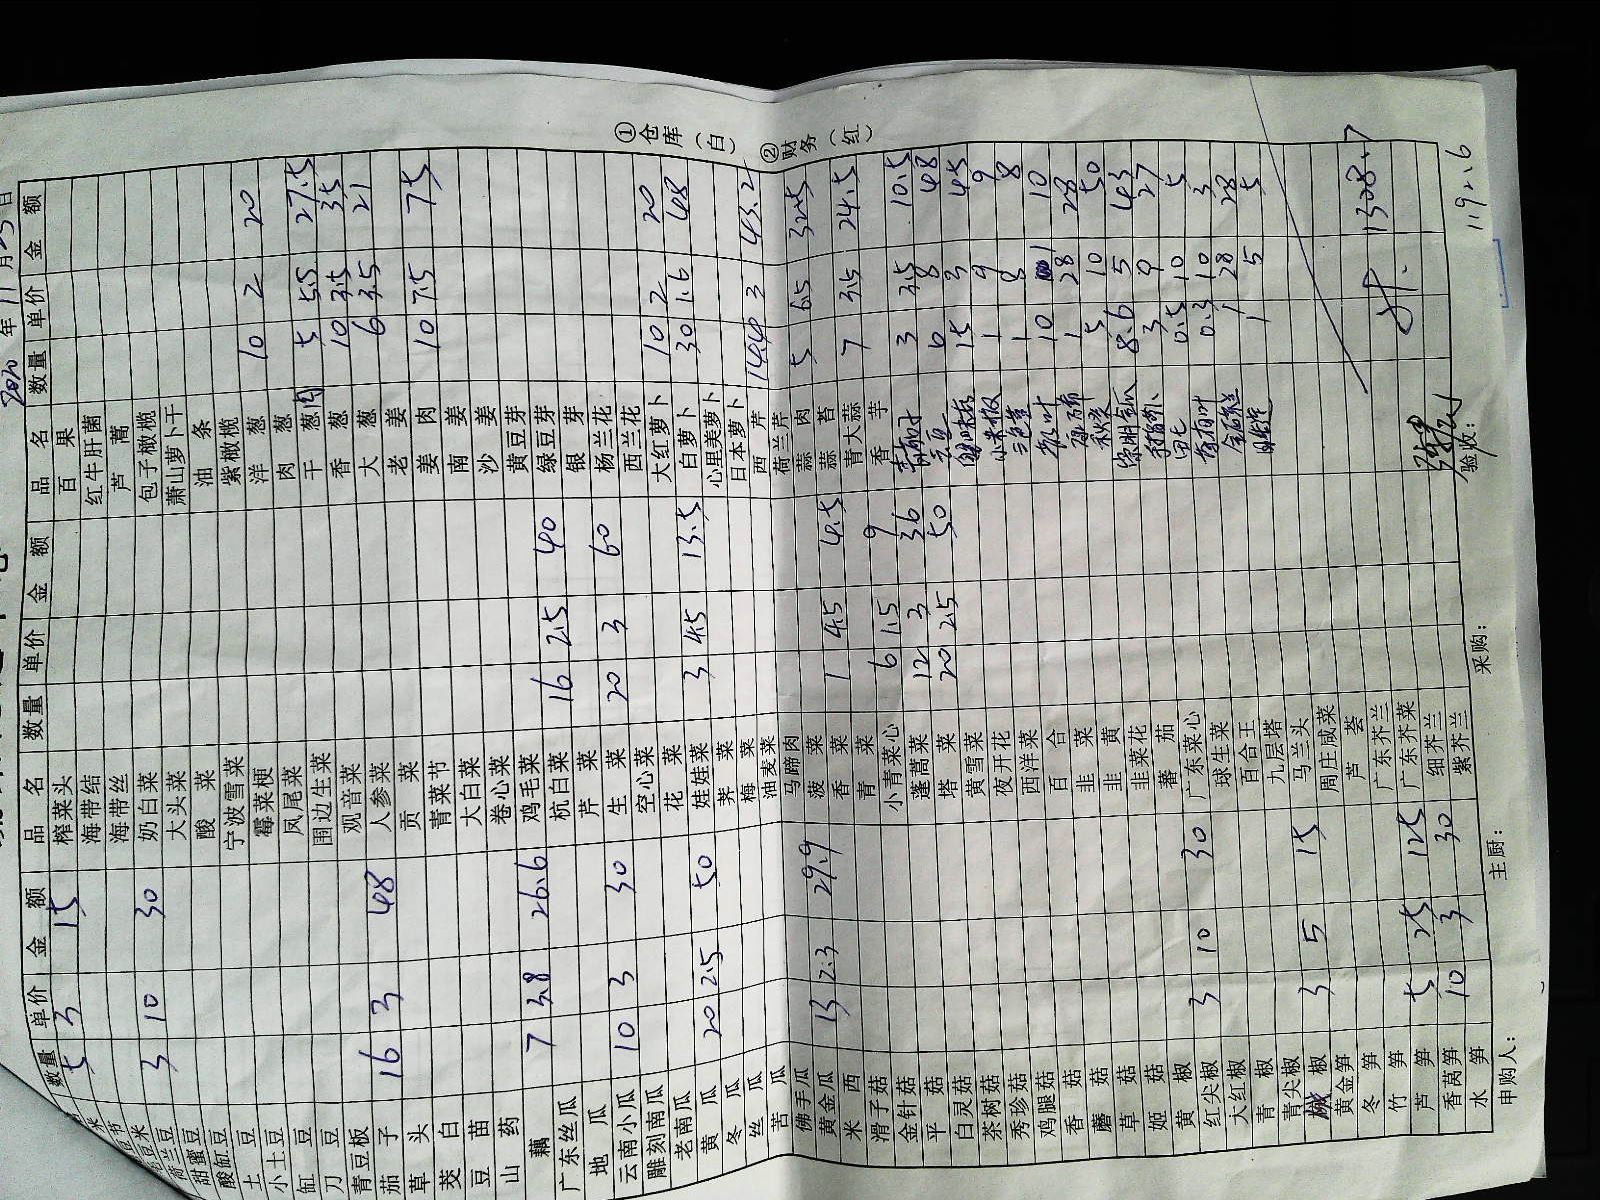 2020 年 11 月 25 日
数量 单价 金额 品名 数量 单价 金额 品名 数量 单价 金额
5 3 15
荷兰豆 3 10 30
甜蜜豆
酸豇豆
土豆
小土豆
豇豆
刀豆
青豆板
茄子 16 3 48
草头
茭白
豆苗
山药
藕 7 3.8 26.6
广东丝瓜
地瓜
云南小瓜 10 3 30
雕刻南瓜
老南瓜
黄瓜 20 2.5 50
冬瓜
丝瓜
苦瓜
佛手瓜
黄金瓜 13 2.3 29.9
米西
滑子菇
金针菇
平菇
白灵菇
茶树菇
秀珍菇
鸡腿菇
香菇
蘑菇
草菇
姬菇
黄椒
红尖椒 3 10 30
大红椒
青椒
青尖椒
椒 3 5 15
黄金笋
冬笋
竹笋
芦笋 5 25 125
香莴笋 10 3 30
水笋
榨菜头
海带结
海带丝
奶白菜
大头菜
酸菜
宁波雪菜
霉菜梗
凤尾菜
围边生菜
观音菜
人参菜
贡菜
青菜节
大白菜
卷心菜
鸡毛菜
杭白菜 16 2.5 40
芹菜
生菜 20 3 60
空心菜
花菜
娃娃菜 3 4.5 13.5
荠菜
梅菜
油麦菜
马蹄肉
菠菜
香菜 1 4.5 4.5
青菜
小青菜心 6 1.5 9
蓬蒿菜 12 3 36
塔菜 20 2.5 50
黄雪菜
夜开花
西洋菜
百合
韭菜
韭黄
韭菜花
蕃茄
广东菜心
球生菜
百合王
九层塔
马兰头
周庄咸菜
芦荟
广东芥兰
广东芥菜
细芥兰
紫芥兰
百果
红牛肝菌
芦蒿
包子橄榄
萧山萝卜干
油条
紫橄榄
洋葱 10 2 20
肉葱
干葱肉 5 5.5 27.5
香葱 10 3.5 35
大葱 6 3.5 21
老姜
姜肉 10 7.5 75
南姜
沙姜
黄豆芽
绿豆芽
银芽
杨兰花
西兰花
大红萝卜 10 2 20
白萝卜 30 1.6 48
心里美萝卜
日本萝卜
西芹 14.4 3 43.2
荷兰芹
蒜肉 5 6.5 32.5
蒜苔
青大蒜 7 3.5 24.5
香芋
3 3.5 10.5
6 8 48
15 3 45
小米椒 1 9 9
1 8 8
10 1 10
1 28 28
秋葵 5 10 50
8.6 5 43
3 9 27
0.5 10 5
0.3 10 3
1 28 28
1 5 5
1308.7
1192.6
申购人： 主厨： 采购： 验收：
①仓库（白） ②财务（红）